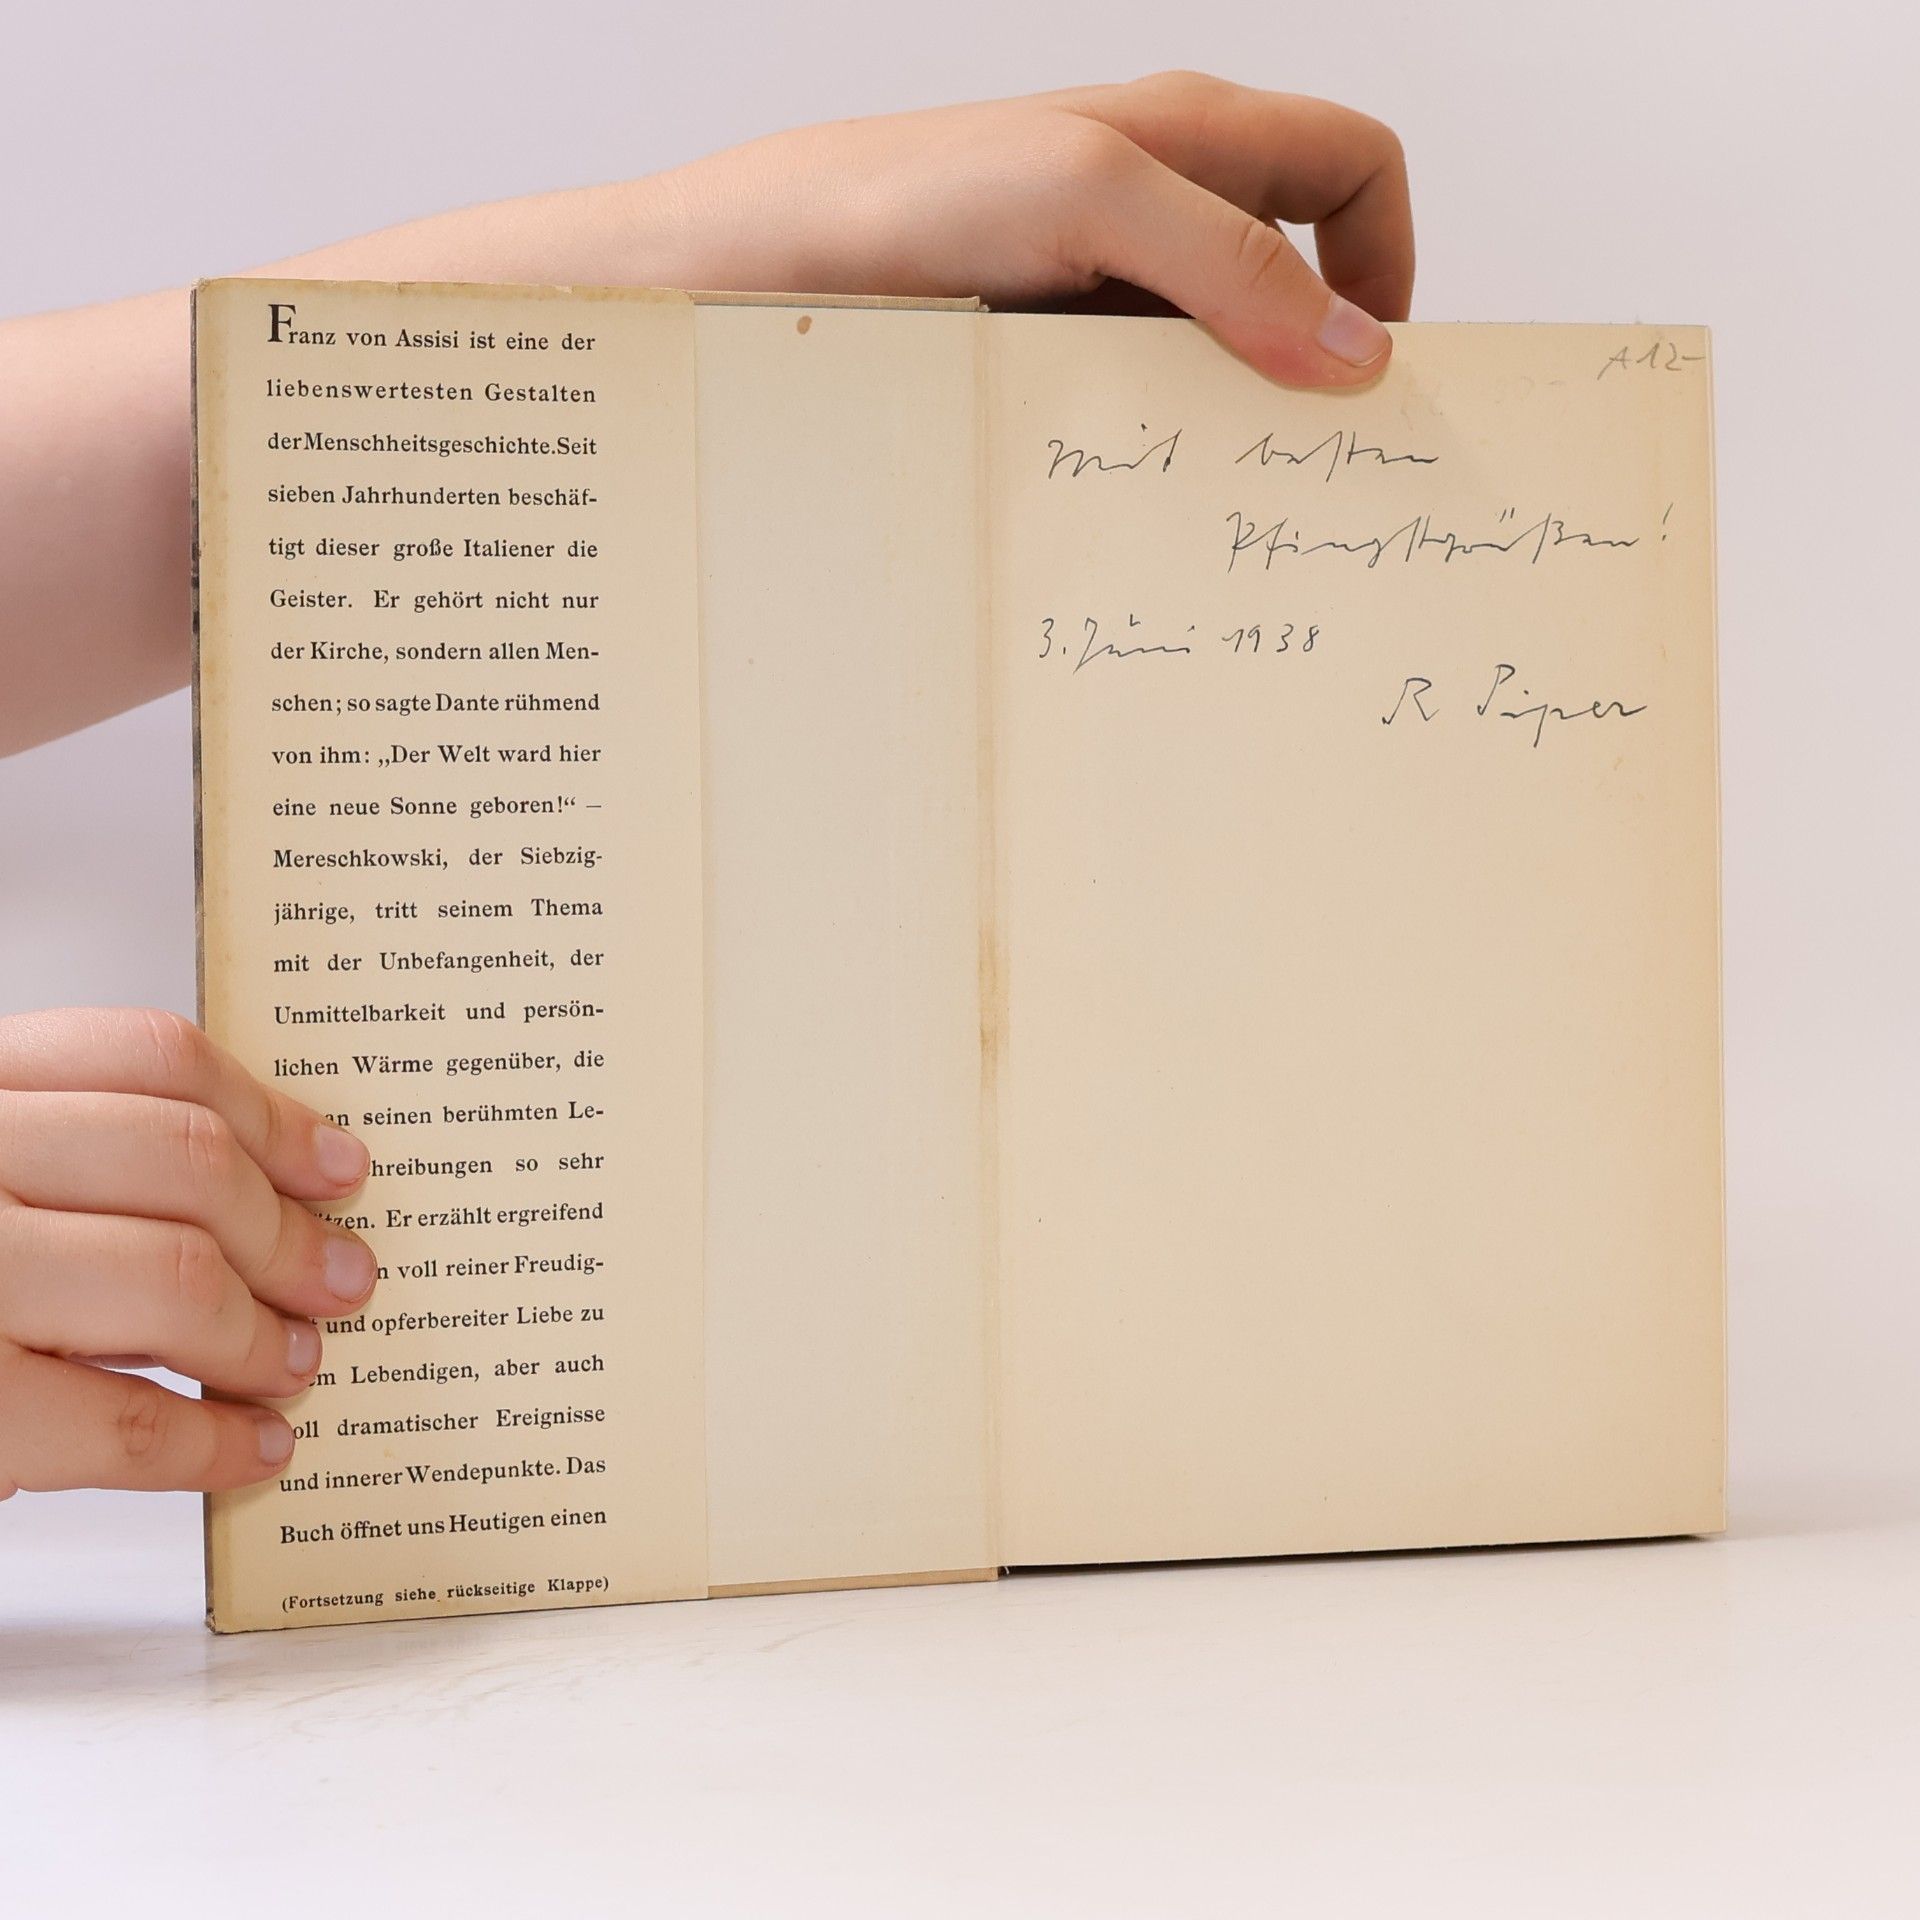 Franz von Assisi ist eine der
liebenswertesten Gestalten
der Menschheitsgeschichte. Seit
sieben Jahrhunderten beschäf-
tigt dieser große Italiener die
Geister. Er gehört nicht nur
der Kirche, sondern allen Men-
schen; so sagte Dante rühmend
von ihm: „Der Welt ward hier
eine neue Sonne geboren!“ –
Mereschkowski, der Siebzig-
jährige, tritt seinem Thema
mit der Unbefangenheit, der
Unmittelbarkeit und persön-
lichen Wärme gegenüber, die
seinen berühmten Le-
hreibungen so sehr
tzen. Er erzählt ergreifend
n voll reiner Freudig-
und opferbereiter Liebe zu
em Lebendigen, aber auch
oll dramatischer Ereignisse
und innerer Wendepunkte. Das
Buch öffnet uns Heutigen einen
(Fortsetzung siehe rückseitige Klappe)
A 12-
Mit besten
Pfingstgrüßen!
3. Juni 1938
R Piper